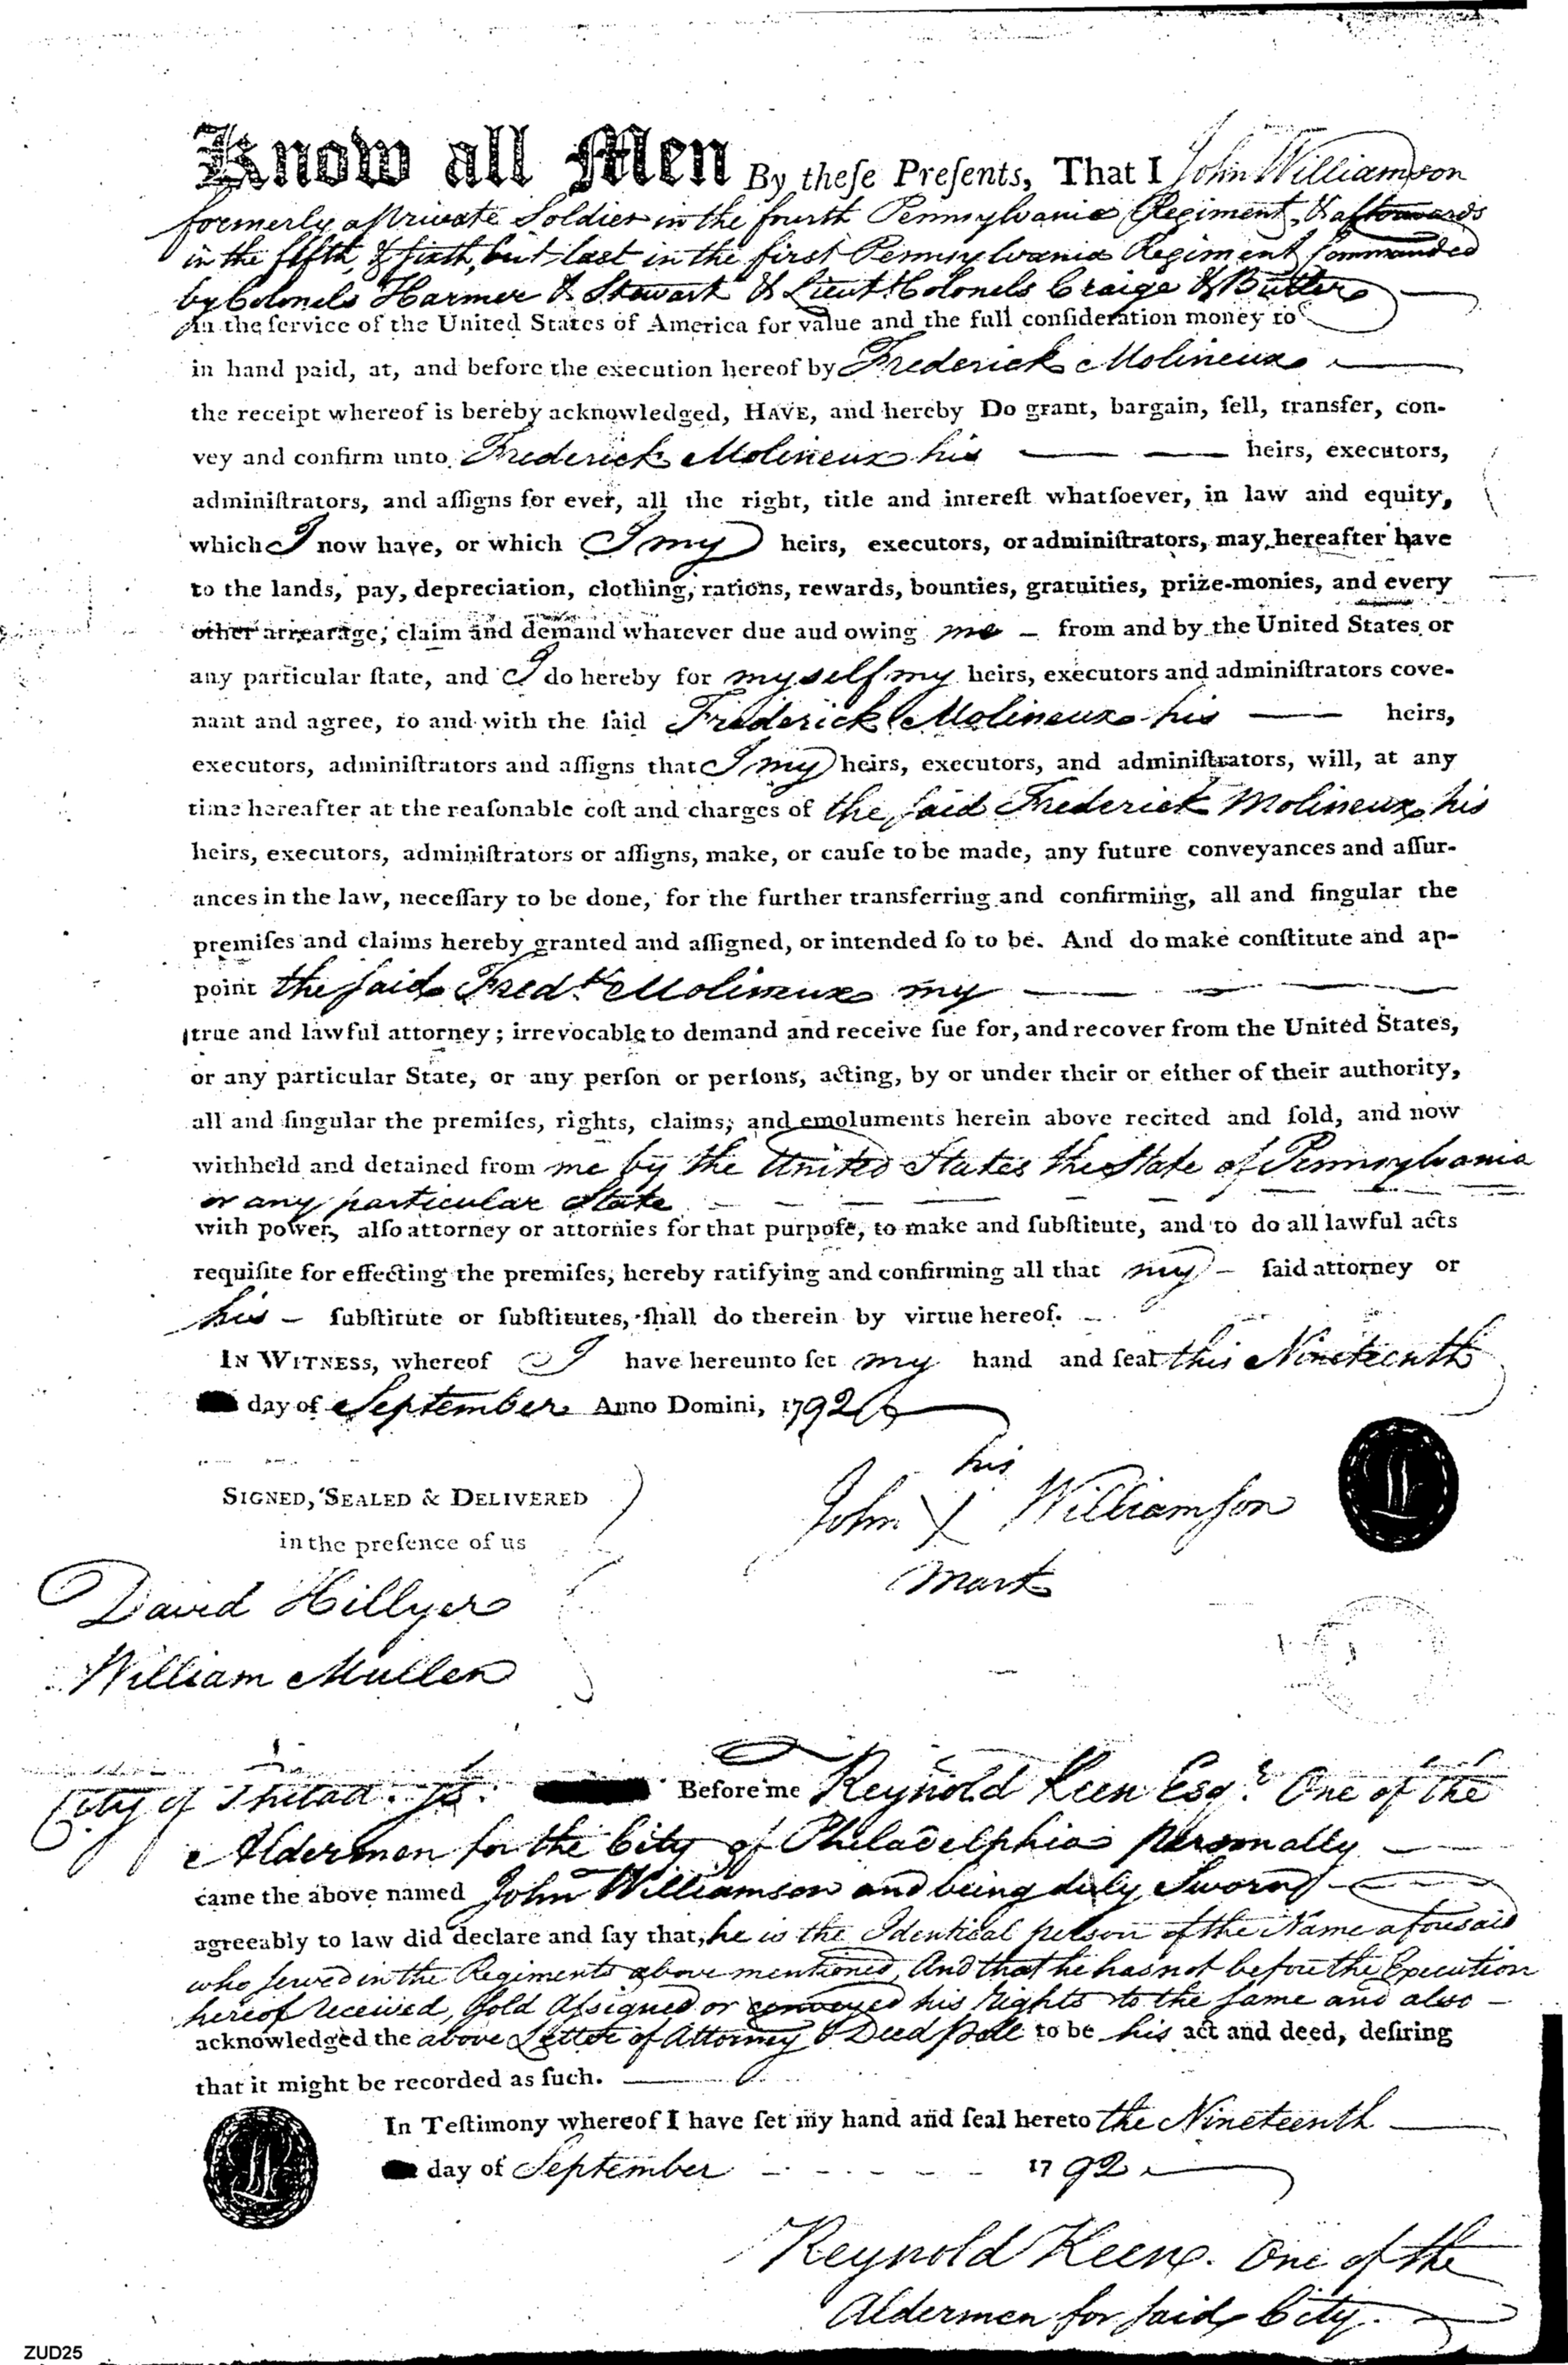 Know all Men By theſe Preſents, That I John Williamson
formerly a Private Soldier in the fourth Pennsylvania Regiment, & afterwards
in the fifth, & ſixth, but laſt in the first Pennsylvania Regiment Commanded
by Colonels Harmer & Stewart & Lieut. Colonels Craige & Butler
In the ſervice of the United States of America for value and the full conſideration money to
in hand paid, at, and before the execution hereof by Frederick Molineux
the receipt whereof is hereby acknowledged, HAVE, and hereby Do grant, bargain, ſell, transfer, con-
vey and confirm unto Frederick Molineux his — — heirs, executors,
adminiſtrators, and aſſigns for ever, all the right, title and intereſt whatſoever, in law and equity,
which I now have, or which I my heirs, executors, or adminiſtrators, may hereafter have
to the lands, pay, depreciation, clothing, rations, rewards, bounties, gratuities, prize-monies, and every
other arrearage, claim and demand whatever due aud owing me — from and by the United States or
any particular ſtate, and I do hereby for myself my heirs, executors and adminiſtrators cove-
nant and agree, to and with the ſaid Frederick Molineux his — heirs,
executors, adminiſtrators and aſſigns that I my heirs, executors, and adminiſtrators, will, at any
time hereafter at the reaſonable coſt and charges of the ſaid Frederick Molineux his
heirs, executors, adminiſtrators or aſſigns, make, or cauſe to be made, any future conveyances and aſſur-
ances in the law, neceſſary to be done, for the further transferring and confirming, all and ſingular the
premiſes and claims hereby granted and aſſigned, or intended ſo to be. And do make conſtitute and ap-
point the ſaid Fredk. Molineux my — — —
true and lawful attorney; irrevocable to demand and receive ſue for, and recover from the United States,
or any particular State, or any perſon or perſons, acting, by or under their or either of their authority,
all and ſingular the premiſes, rights, claims, and emoluments herein above recited and ſold, and now
withheld and detained from me by the United States the State of Pennsylvania
or any particular State — — — —
with power, alſo attorney or attornies for that purpoſe, to make and ſubſtitute, and to do all lawful acts
requiſite for effecting the premiſes, hereby ratifying and confirming all that my — ſaid attorney or
his — ſubſtitute or ſubſtitutes, ſhall do therein by virtue hereof.
IN WITNESS, whereof I have hereunto ſet my hand and ſeal this Nineteenth
day of September Anno Domini, 1792
his
John X Williamſon
mark
SIGNED, SEALED & DELIVERED
in the preſence of us
David Hillyer
William Mullen
City of Philad. ſs. Before me Reynold Keen Esqr. One of the
Aldermen for the City of Philadelphia personally —
came the above named John Williamson and being duly Sworn —
agreeably to law did declare and ſay that, he is the Identical person of the Name aforesaid
who ſerved in the Regiments above mentioned, And that he has not before the Execution
hereof received, ſold Aſsigned or conveyed his Rights to the ſame and also —
acknowledged the above Letter of Attorney & Deed poll to be his act and deed, deſiring
that it might be recorded as ſuch.
In Teſtimony whereof I have ſet my hand and ſeal hereto the Nineteenth —
day of September - - - - - 1792
Reynold Keen. One of the
Aldermen for ſaid City.
ZUD25